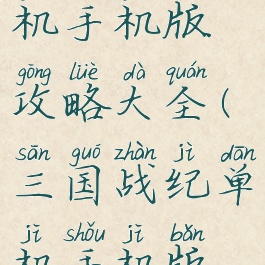 机手机版
gōng lüè dà quán
攻略大全(
sān guó zhàn jì dān
三国战纪单
jī shǒu jī bǎn
机手机版